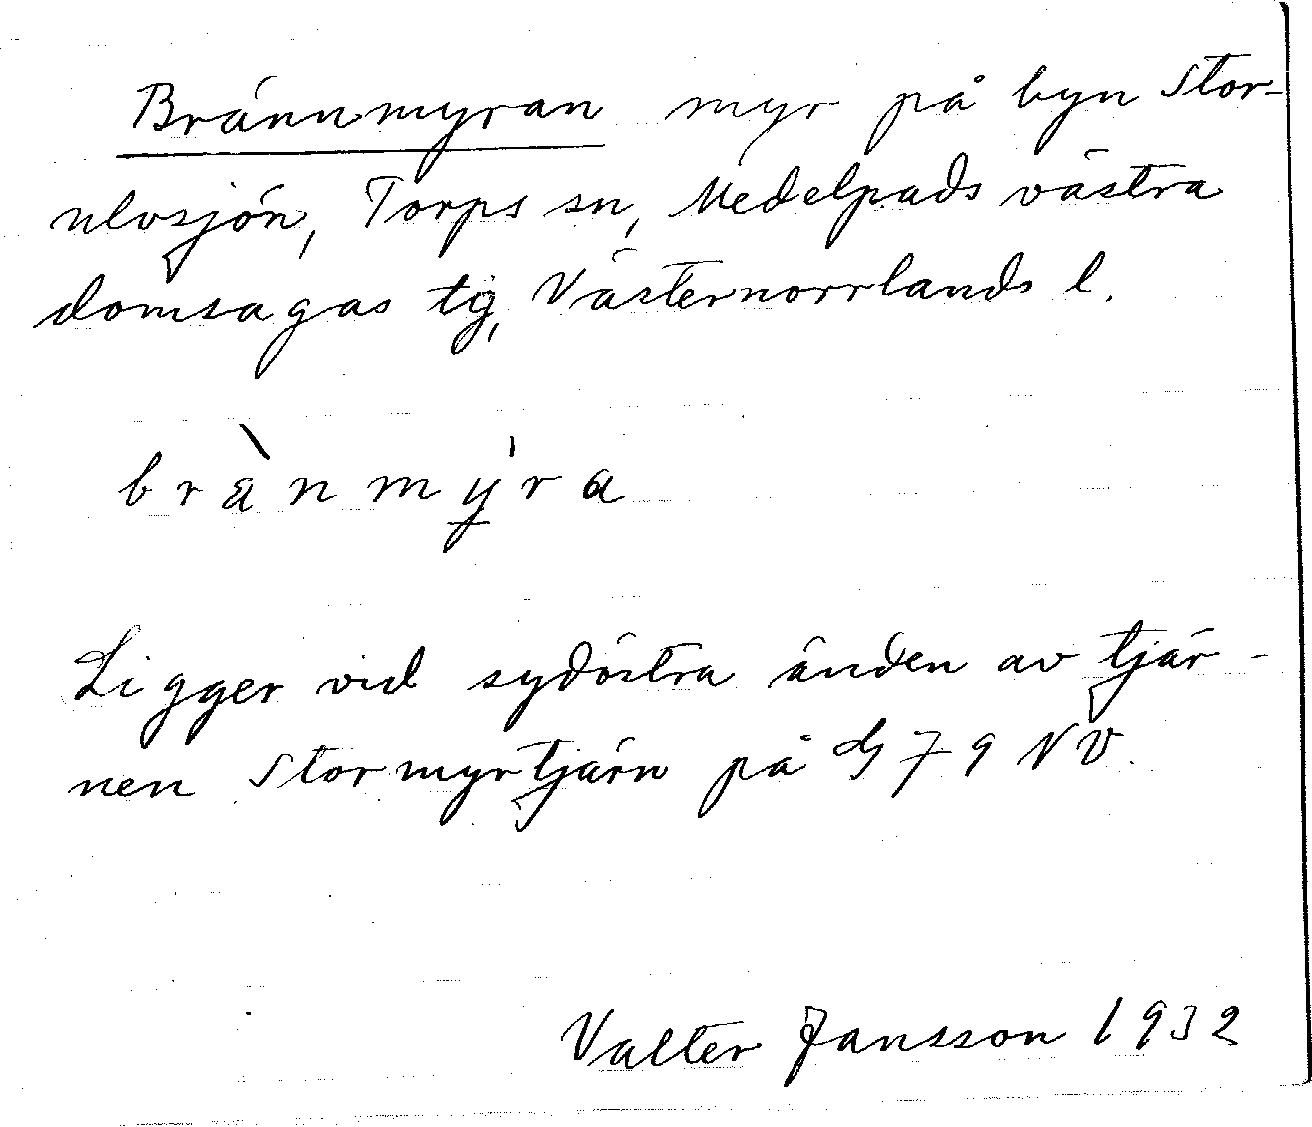 Brännmyran myr på byn Stor-
ulvsjön, Torps sn, Medelpads västra
domsagas tg, Västernorrlands l.
brànmy̍ra
Ligger vid sydöstra änden av tjär-
nen Stormyrtjärn på G79 NV.
Valter Jansson 1932